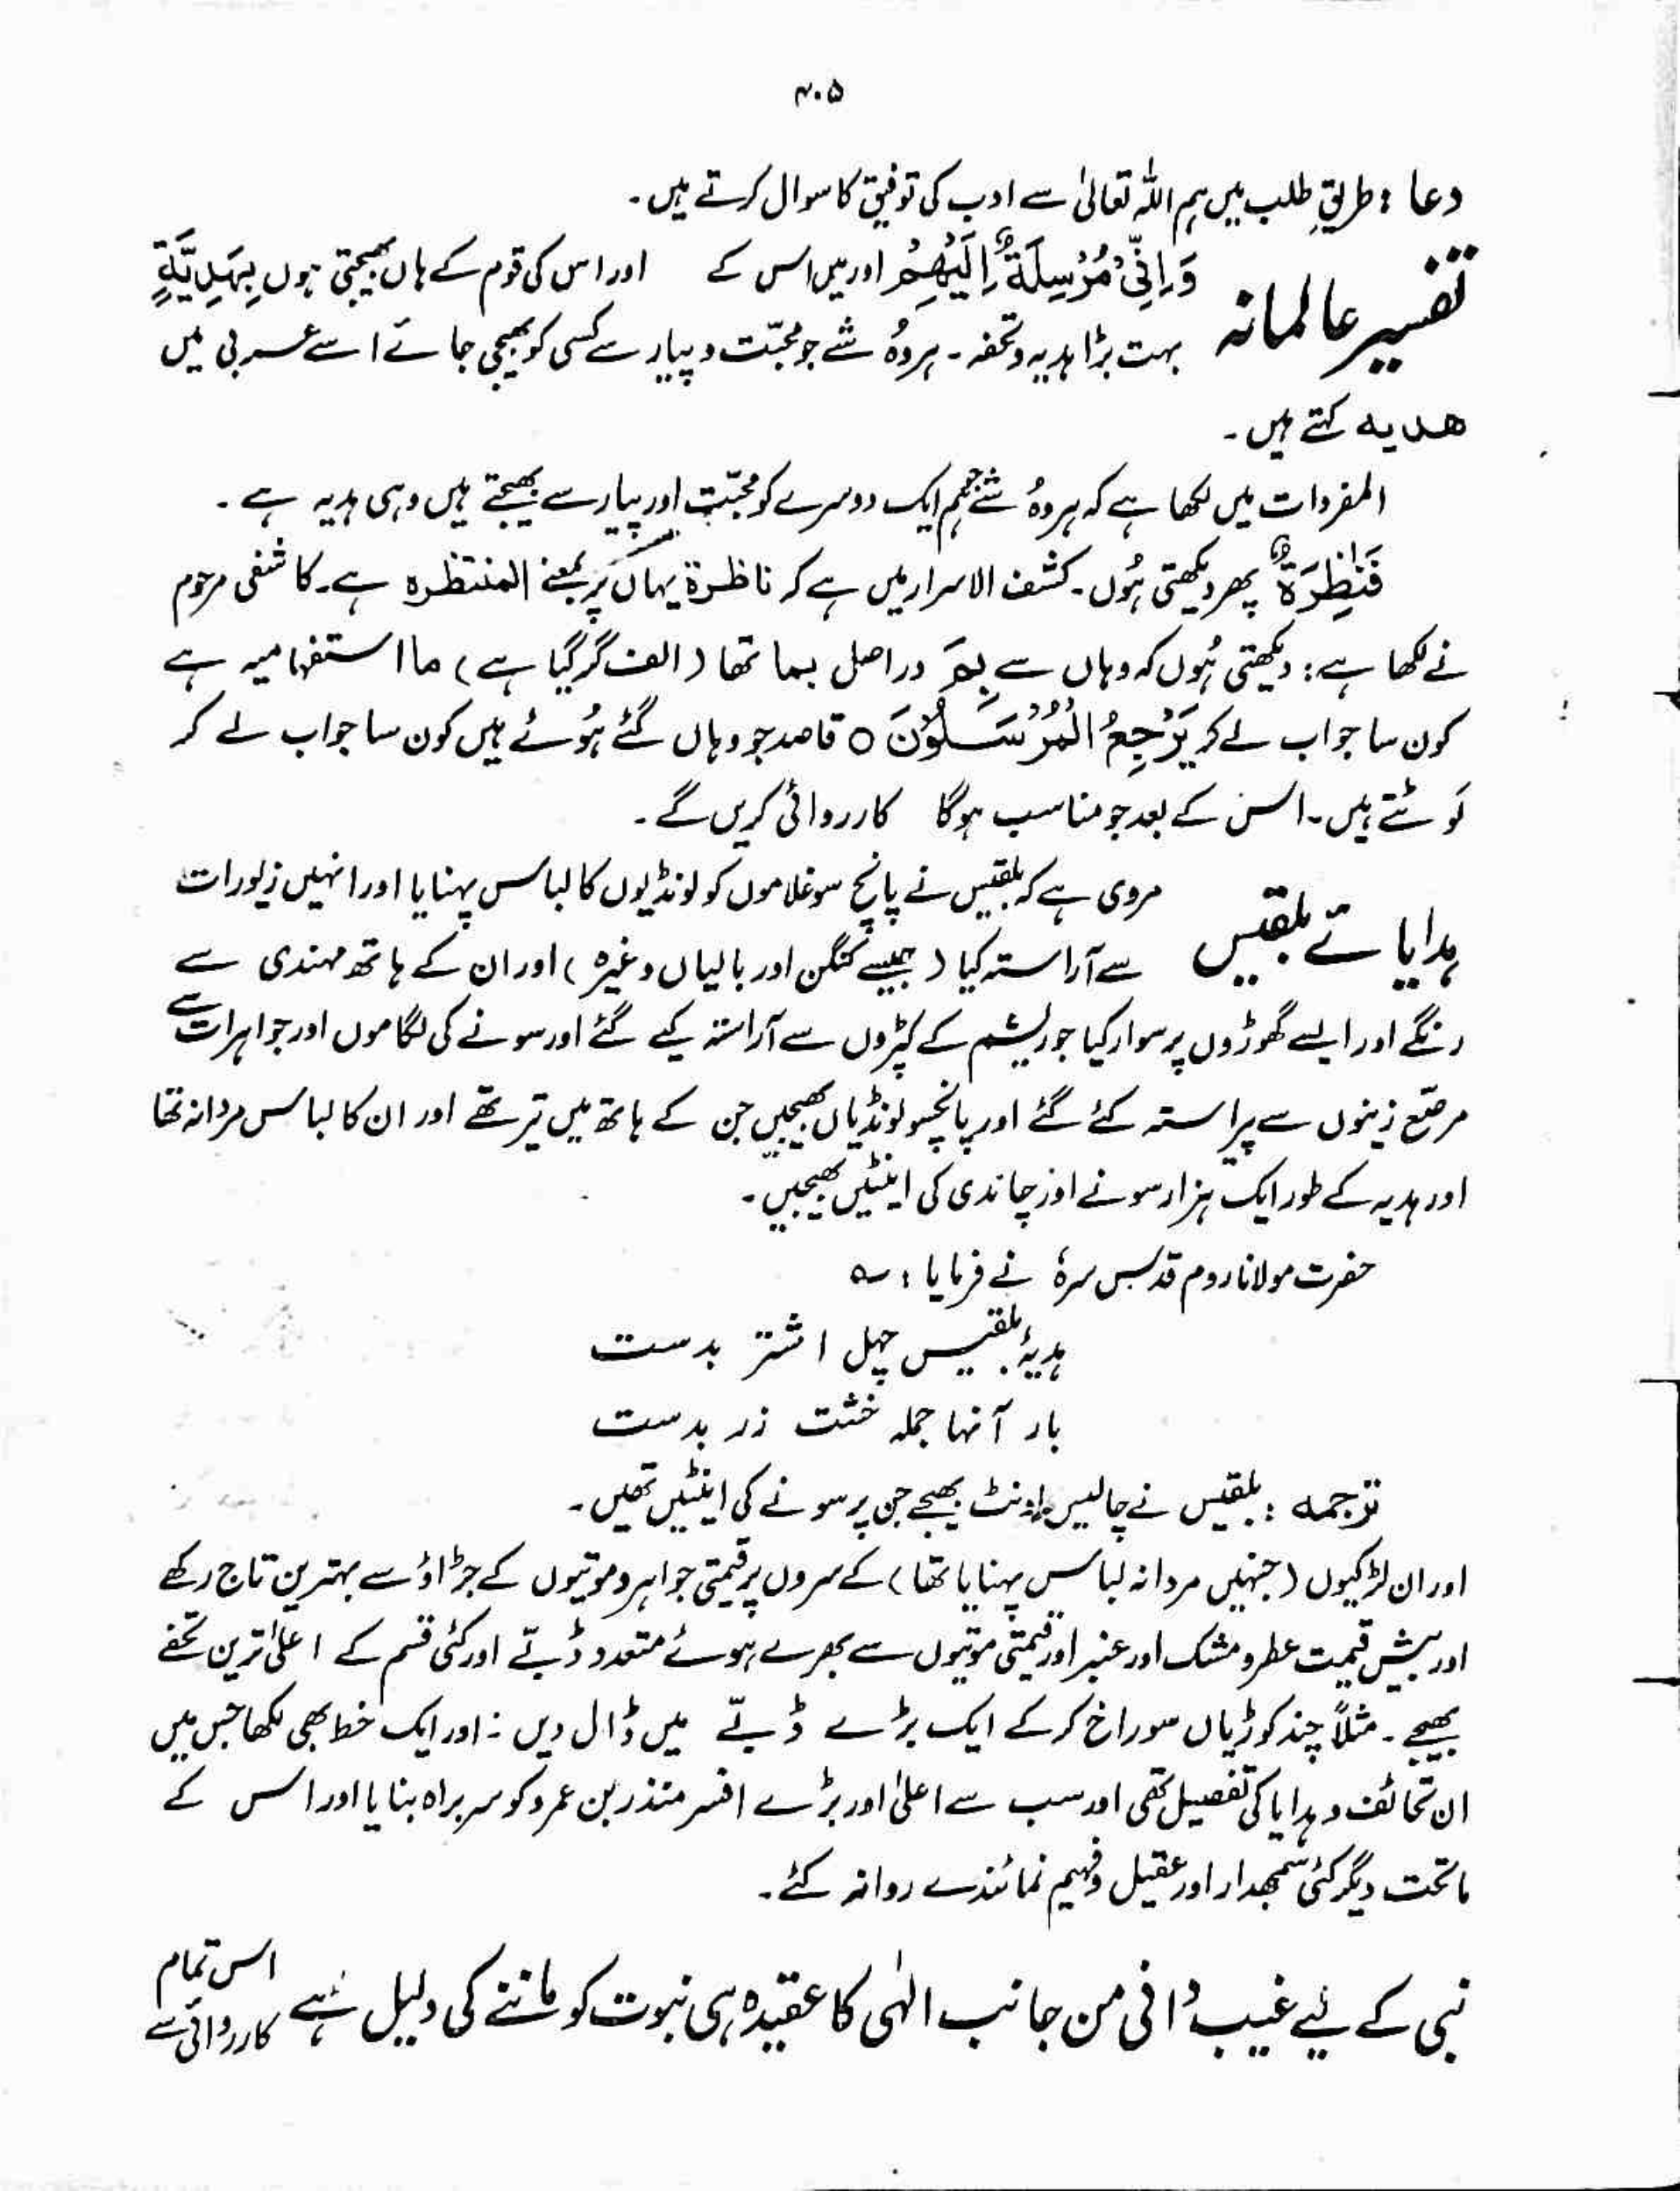 ۴۰۵
دعا : طریقِ طلب میں ہم اللہ تعالیٰ سے ادب کی توفیق کا سوال کرتے ہیں۔
تفسیر عالمانہ وَاِنِّیْ مُرْسِلَةٌ اِلَیْهِمْ اور میں اس کے اور اس کی قوم کے ہاں بھیجتی ہوں بِهَدِیَّةٍ
بہت بڑا ہدیہ و تحفہ۔ ہر وہُ شے جو محبّت و پیار سے کسی کو بھیجی جائے اسے عربی میں
ھدیہ کہتے ہیں۔
المفردات میں لکھا ہے کہ ہر وہُ شے جو ہم ایک دوسرے کو محبّت اور پیار سے بھیجتے ہیں وہی ہدیہ ہے۔
فَنٰظِرَةٌ پھر دیکھتی ہُوں۔ کشف الاسرار میں ہے کہ ناظرۃ یہاں پر بمعنے المنتظرہ ہے۔ کاشفی مرحوم
نے لکھا ہے: دیکھتی ہُوں کہ وہاں سے بِمَ دراصل بما تھا (الف گر گیا ہے) ما استفہامیہ ہے
کون سا جواب لے کر یَرْجِعُ الْمُرْسَلُوْنَ ○ قاصد جو وہاں گئے ہُوئے ہیں کون سا جواب لے کر
لَوٹتے ہیں۔ اس کے بعد جو مناسب ہوگا کارروائی کریں گے۔
ہدایائے بلقیس مروی ہے کہ بلقیس نے پانچ سو غلاموں کو لونڈیوں کا لباس پہنایا اور انہیں زیورات
سے آراستہ کیا (جیسے کنگن اور بالیاں وغیرہ) اور ان کے ہاتھ مہندی سے
رنگے اور ایسے گھوڑوں پر سوار کیا جو ریشم کے کپڑوں سے آراستہ کیے گئے اور سونے کی لگاموں اور جواہرات سے
مرصّع زینوں سے پیراستہ کئے گئے اور پانچسو لونڈیاں بھیجیں جن کے ہاتھ میں تیر تھے اور ان کا لباس مردانہ تھا
اور ہدیہ کے طور ایک ہزار سونے اور چاندی کی اینٹیں بھیجیں۔
حضرت مولانا روم قدس سرہٗ نے فرمایا : ؎
ہدیۂ بلقیس چہل اشتر بدست
بار آنہا جملہ خشت زر بدست
ترجمہ : بلقیس نے چالیس اونٹ بھیجے جن پر سونے کی اینٹیں تھیں۔
اور ان لڑکیوں (جنہیں مردانہ لباس پہنایا تھا) کے سروں پر قیمتی جواہر و موتیوں کے جڑاؤ سے بہترین تاج رکھے
اور بیش قیمت عطر و مشک اور عنبر اور قیمتی موتیوں سے بھرے ہوئے متعدد ڈبّے اور کئی قسم کے اعلیٰ ترین تحفے
بھیجے۔ مثلاً چند کوڑیاں سوراخ کر کے ایک بڑے ڈبّے میں ڈال دیں۔ اور ایک خط بھی لکھا جس میں
ان تحائف و ہدایا کی تفصیل تھی اور سب سے اعلیٰ اور بڑے افسر منذر بن عمرو کو سربراہ بنایا اور اس کے
ماتحت دیگر کئی سمجھدار اور عقیل و فہیم نمائندے روانہ کئے۔
نبی کے لیے غیب دانی من جانب الٰہی کا عقیدہ ہی نبوت کو ماننے کی دلیل ہے اس تمام
کارروائی سے